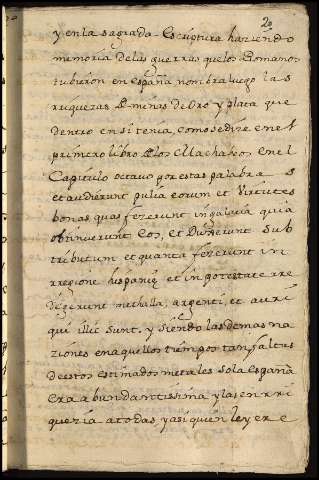 20
y en la sagrada Escruptura haziendo
memoria de las guerras que los Romanos
tubieron en españa nombra luego las
rriquezas E minas de Oro y plata que
dentro en si tenia, como se dize en el
primero libro de los Machabeos en el
Capitulo octavo por estas palabras
et audierunt pulia eorum et Virtutes
bonas quas fezerunt in galacia quia
obtinuerunt Eos, et Duxerunt sub
tributum et quanta fezerunt in
rregione hispanię et in potestate rre
degerunt methalla, argenti, et auri
qui illic sunt, y siendo las demas na
ziones en aquellos tiempos tan faltas
de estos estimados metales sola españa
era abundantissima y las enrri
quezia a todas, y asi quien leyere